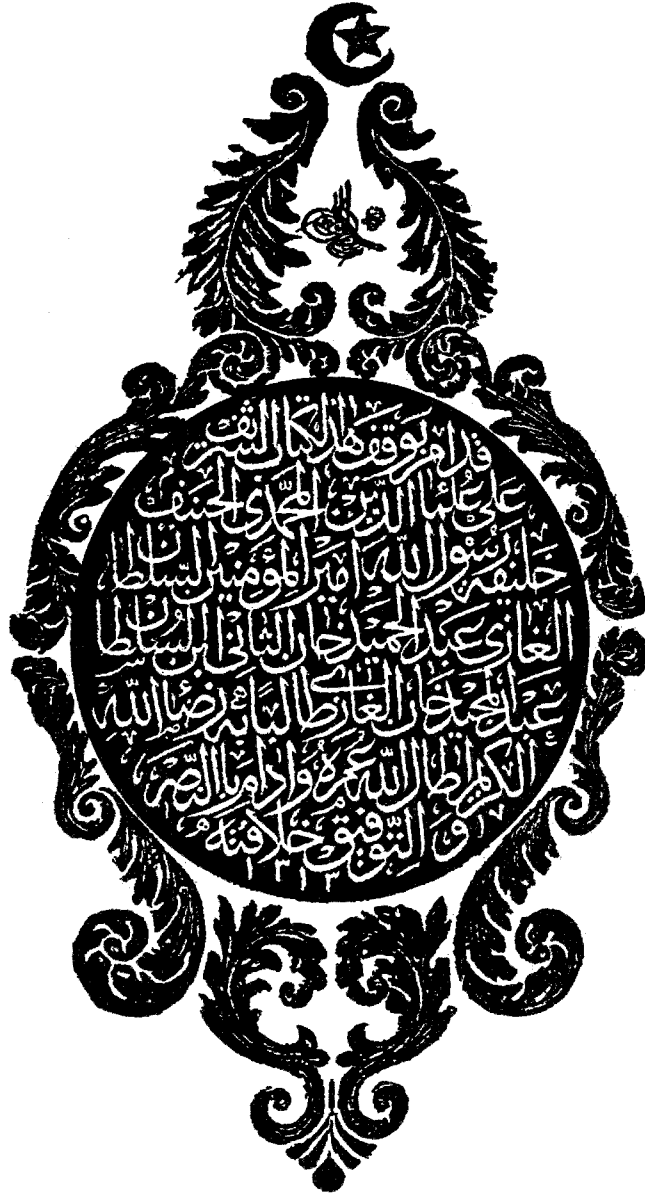 قد امر بوقف هذا الكتاب الشريف
على علماء الدين المحمدي الحنيف
خليفة رسول الله امير المؤمنين السلطان
الغازي عبد الحميد خان الثاني ابن السلطان
عبد المجيد خان الغازي طالبا به رضاء الله
الكريم اطال الله عمره وادام بالنصر
و التوفيق خلافته
١٣١٣